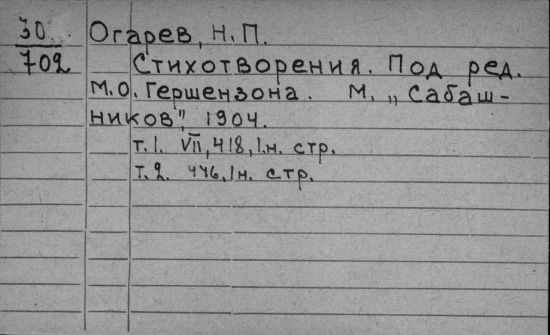 30
702
Огарев, Н. П.
Стихотворения. Под ред.
М.О. Гершензона. М. „Сабаш-
ников", 1904.
т. 1. VII, 418, 1 н. стр.
т. 2. 446, 1 н. стр.